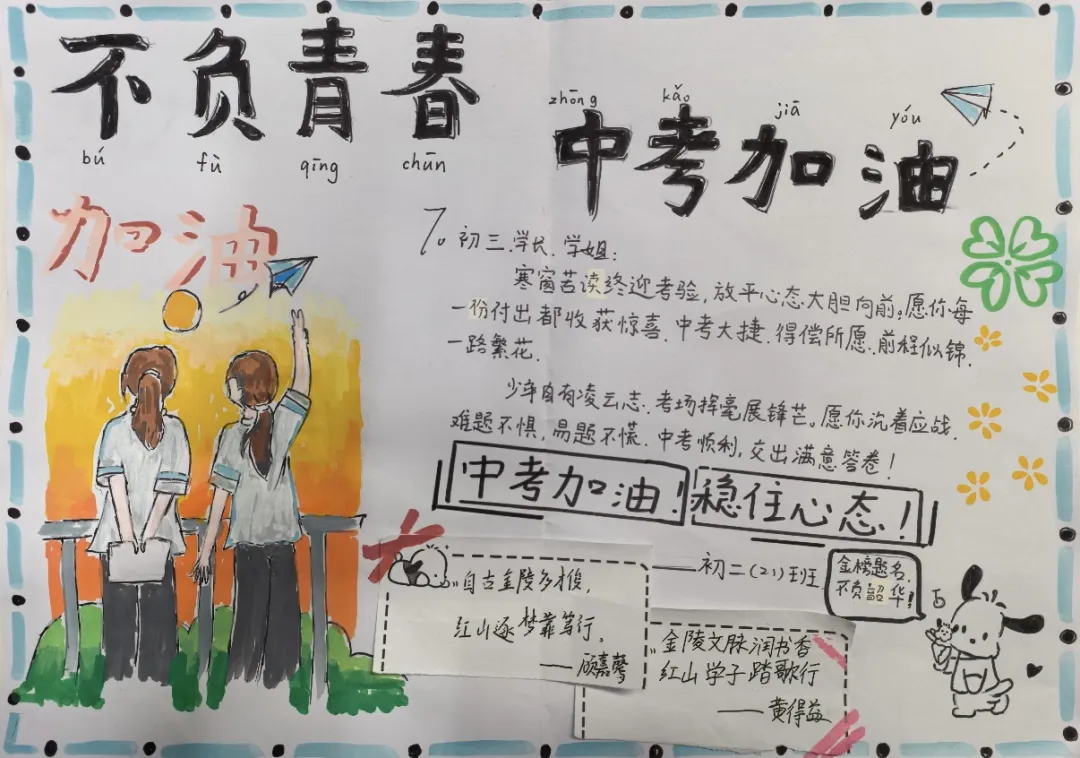 不负青春
bú fù qīng chūn
zhōng kǎo jiā yóu
中考加油
加油
To 初三.学长、学姐:
寒窗苦读终迎考验,放平心态大胆向前。愿你每
一份付出都收获惊喜.中考大捷.得偿所愿.前程似锦.
一路繁花.
少年自有凌云志.考场挥毫展锋芒。愿你沉着应战.
难题不惧,易题不慌.中考顺利,交出满意答卷!
中考加油!稳住心态!
——初二(21)班
金榜题名,
不负韶华!
自古金陵多才俊,
红山逐梦靠笃行。
——顾嘉馨
金陵文脉润书香
红山学子踏歌行
——黄得益